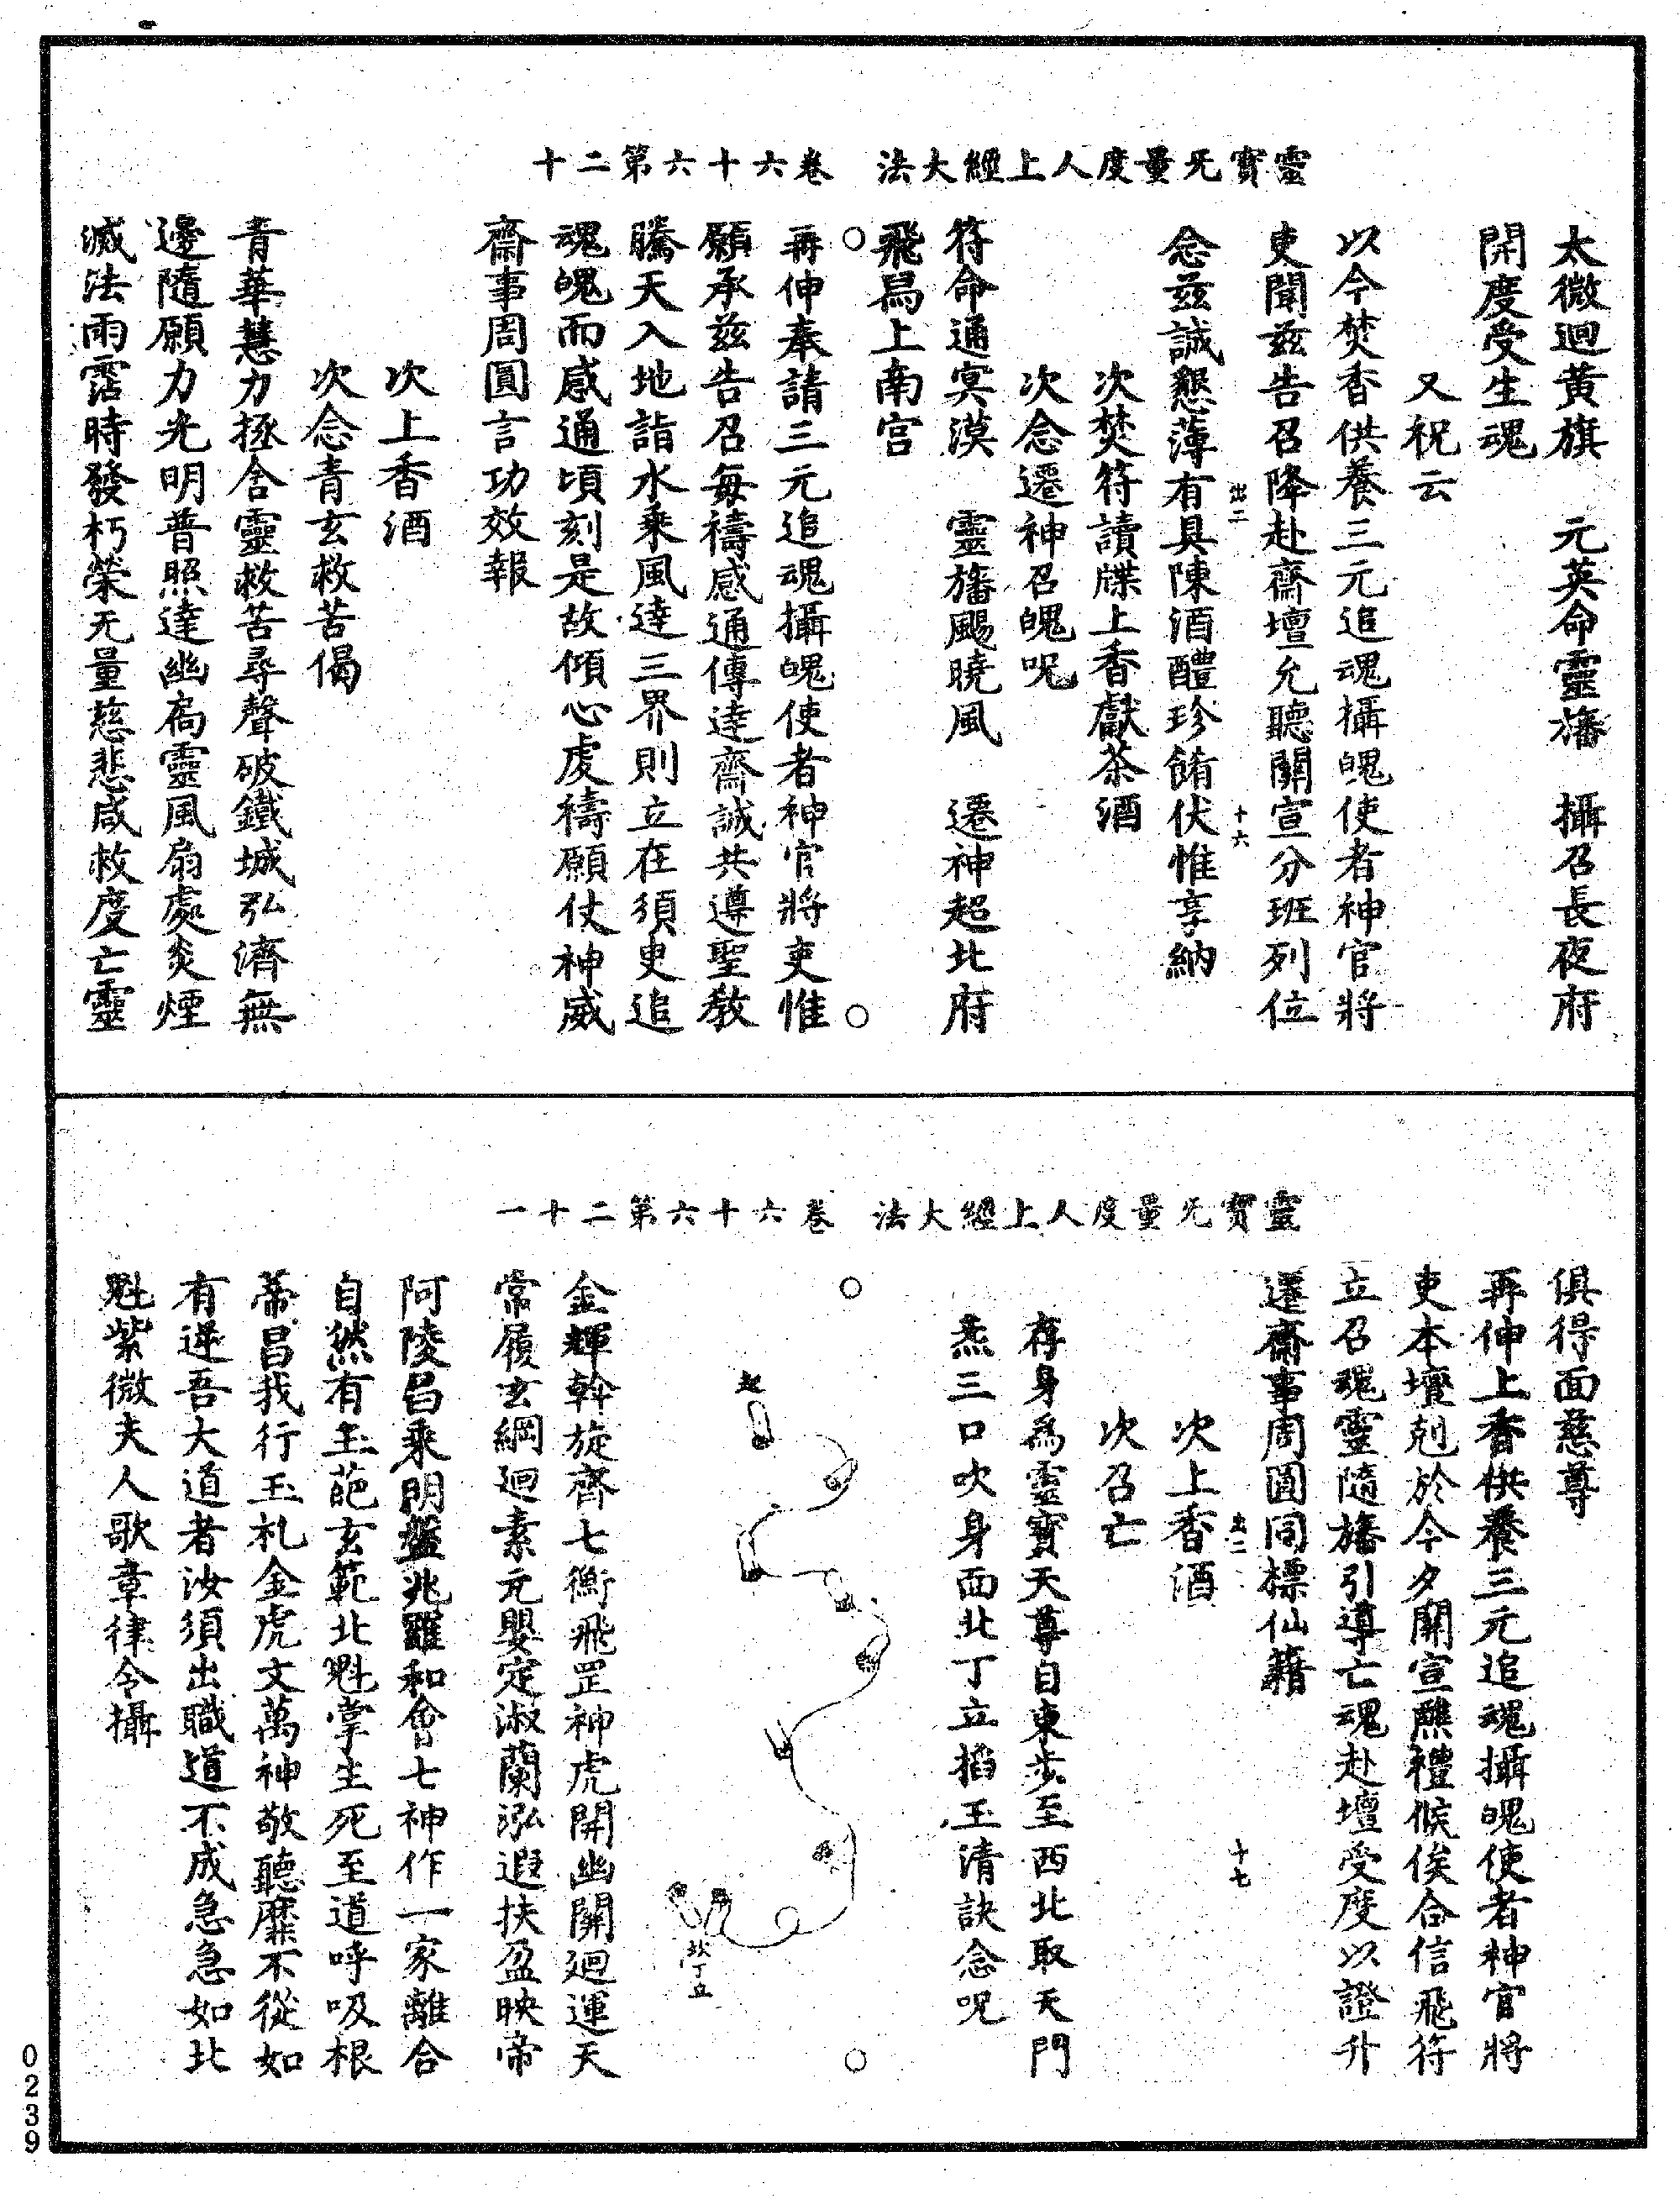 靈寶旡量度人上經大法　卷六十六第二十
太微迴黃旗　元英命靈旛　攝召長夜府
開度受生魂
又祝云
以今焚香供養三元追魂攝魄使者神官將
吏聞茲告召降赴齋壇允聽關宣分班列位
出二　十六
念茲誠懇薄有具陳酒醴珍餚伏惟享納
次焚符讀牒上香獻茶酒
次念遷神召魄呪
符命通寞漠　靈旛颺曉風　遷神超北府
飛舄上南宮
再伸奉請三元追魂攝魄使者神官將吏惟
願承茲告召每禱感通傳達齋誠共遵聖教
騰天入地詣水乘風達三界則立在須臾追
魂魄而感通頃刻是故傾心虔禱願仗神威
齋事周圓言功效報
次上香酒
次念青玄救苦偈
青華慧力拯含靈救苦尋聲破鐵城弘濟無
邊隨願力光明普照達幽扃靈風扇處炎煙
滅法雨霑時發朽榮无量慈悲咸救度亡靈
靈寶旡量度人上經大法　卷六十六第二十一
俱得面慈尊
再伸上香供養三元追魂攝魄使者神官將
吏本壇剋於今夕關宣醮禮候俟合信飛符
立召魂靈隨旛引導亡魂赴壇受度以證升
遷齋事周圓同標仙籍
出二　十七
次上香酒
次召亡
存身為靈寶天尊自東步至西北取天門
炁三口吹身面北丁立掐玉清訣念呪
起
坎丁立
金輝斡旋齊七衡飛罡神虎開幽關迴運天
常履玄綱迴素元嬰定淑蘭泓遐扶盈映帝
阿陵昌乘明盤兆羅和會七神作一家離合
自然有玉葩玄範北魁掌生死至道呼吸根
蒂昌我行玉札金虎文萬神敬聽靡不從如
有逆吾大道者汝須出職道不成急急如北
魁紫微夫人歌章律令攝
0239